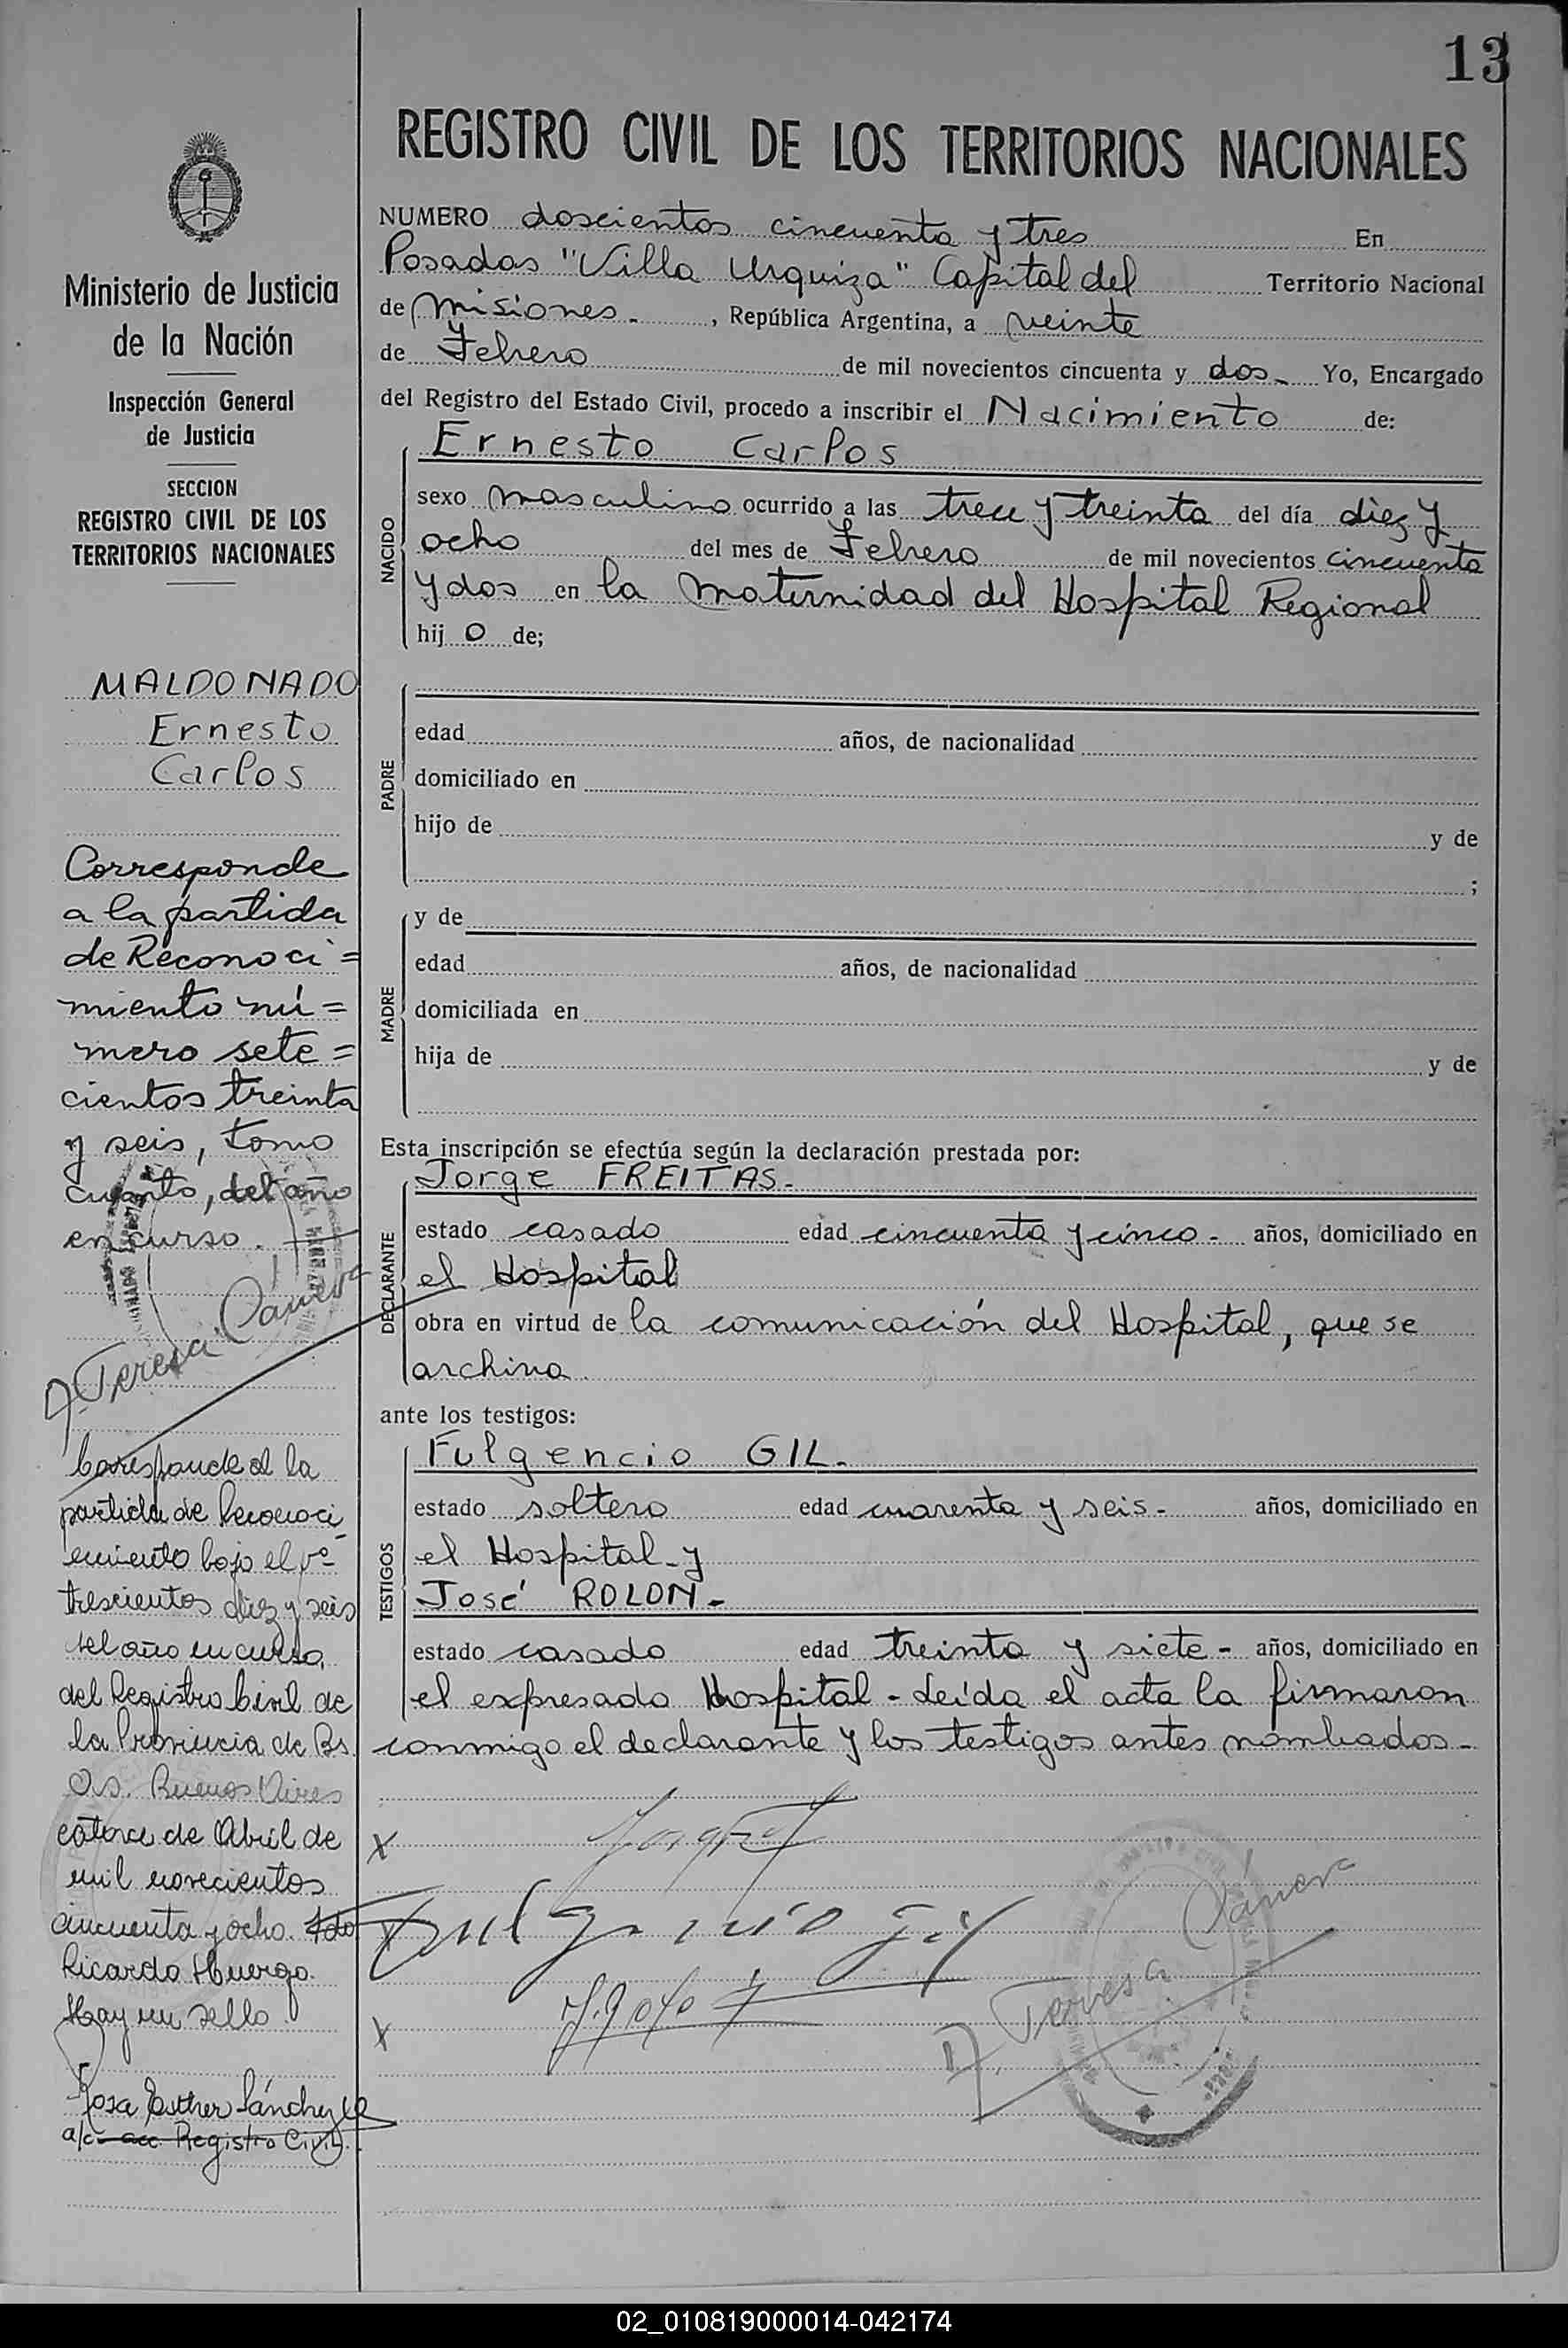 13
REGISTRO CIVIL DE LOS TERRITORIOS NACIONALES
Ministerio de Justicia
de la Nación
Inspección General
de Justicia
SECCION
REGISTRO CIVIL DE LOS
TERRITORIOS NACIONALES
MALDONADO
Ernesto
Carlos
Corresponde
a la partida
de Reconoci=
miento nú=
mero sete=
cientos treinta
y seis, tomo
cuarto, del año
en curso.
Teresa Cánova
Corresponde a la
partida de Reconoci
miento bajo el nº
trescientos diez y seis
del año en curso,
del Registro Civil de
la Provincia de Bs.
As. Buenos Aires
catorce de Abril de
mil novecientos
cincuenta y ocho. Fdo
Ricardo Huergo.
Hay un sello
Rosa Esther Sánchez
a/c Registro Civil.
NUMERO doscientos cincuenta y tres En
Posadas "Villa Urquiza" Capital del Territorio Nacional
de Misiones. , República Argentina, a veinte
de Febrero de mil novecientos cincuenta y dos Yo, Encargado
del Registro del Estado Civil, procedo a inscribir el Nacimiento de:
Ernesto Carlos
NACIDO
sexo masculino ocurrido a las trece y treinta del día diez y
ocho del mes de Febrero de mil novecientos cincuenta
y dos en la maternidad del Hospital Regional
hijo de;
PADRE
edad años, de nacionalidad
domiciliado en
hijo de y de
;
MADRE
y de
edad años, de nacionalidad
domiciliada en
hija de y de
Esta inscripción se efectúa según la declaración prestada por:
Jorge FREITAS.-
DECLARANTE
estado casado edad cincuenta y cinco - años, domiciliado en
el Hospital
obra en virtud de la comunicación del Hospital, que se
archiva
ante los testigos:
Fulgencio GIL.
TESTIGOS
estado soltero edad cuarenta y seis - años, domiciliado en
el Hospital - y
José ROLON -
estado casado edad treinta y siete - años, domiciliado en
el expresado Hospital - Leída el acta la firmaron
conmigo el declarante y los testigos antes nombrados -
x
x Fulgencio Gil
x
Teresa Cánova
02_010819000014-042174